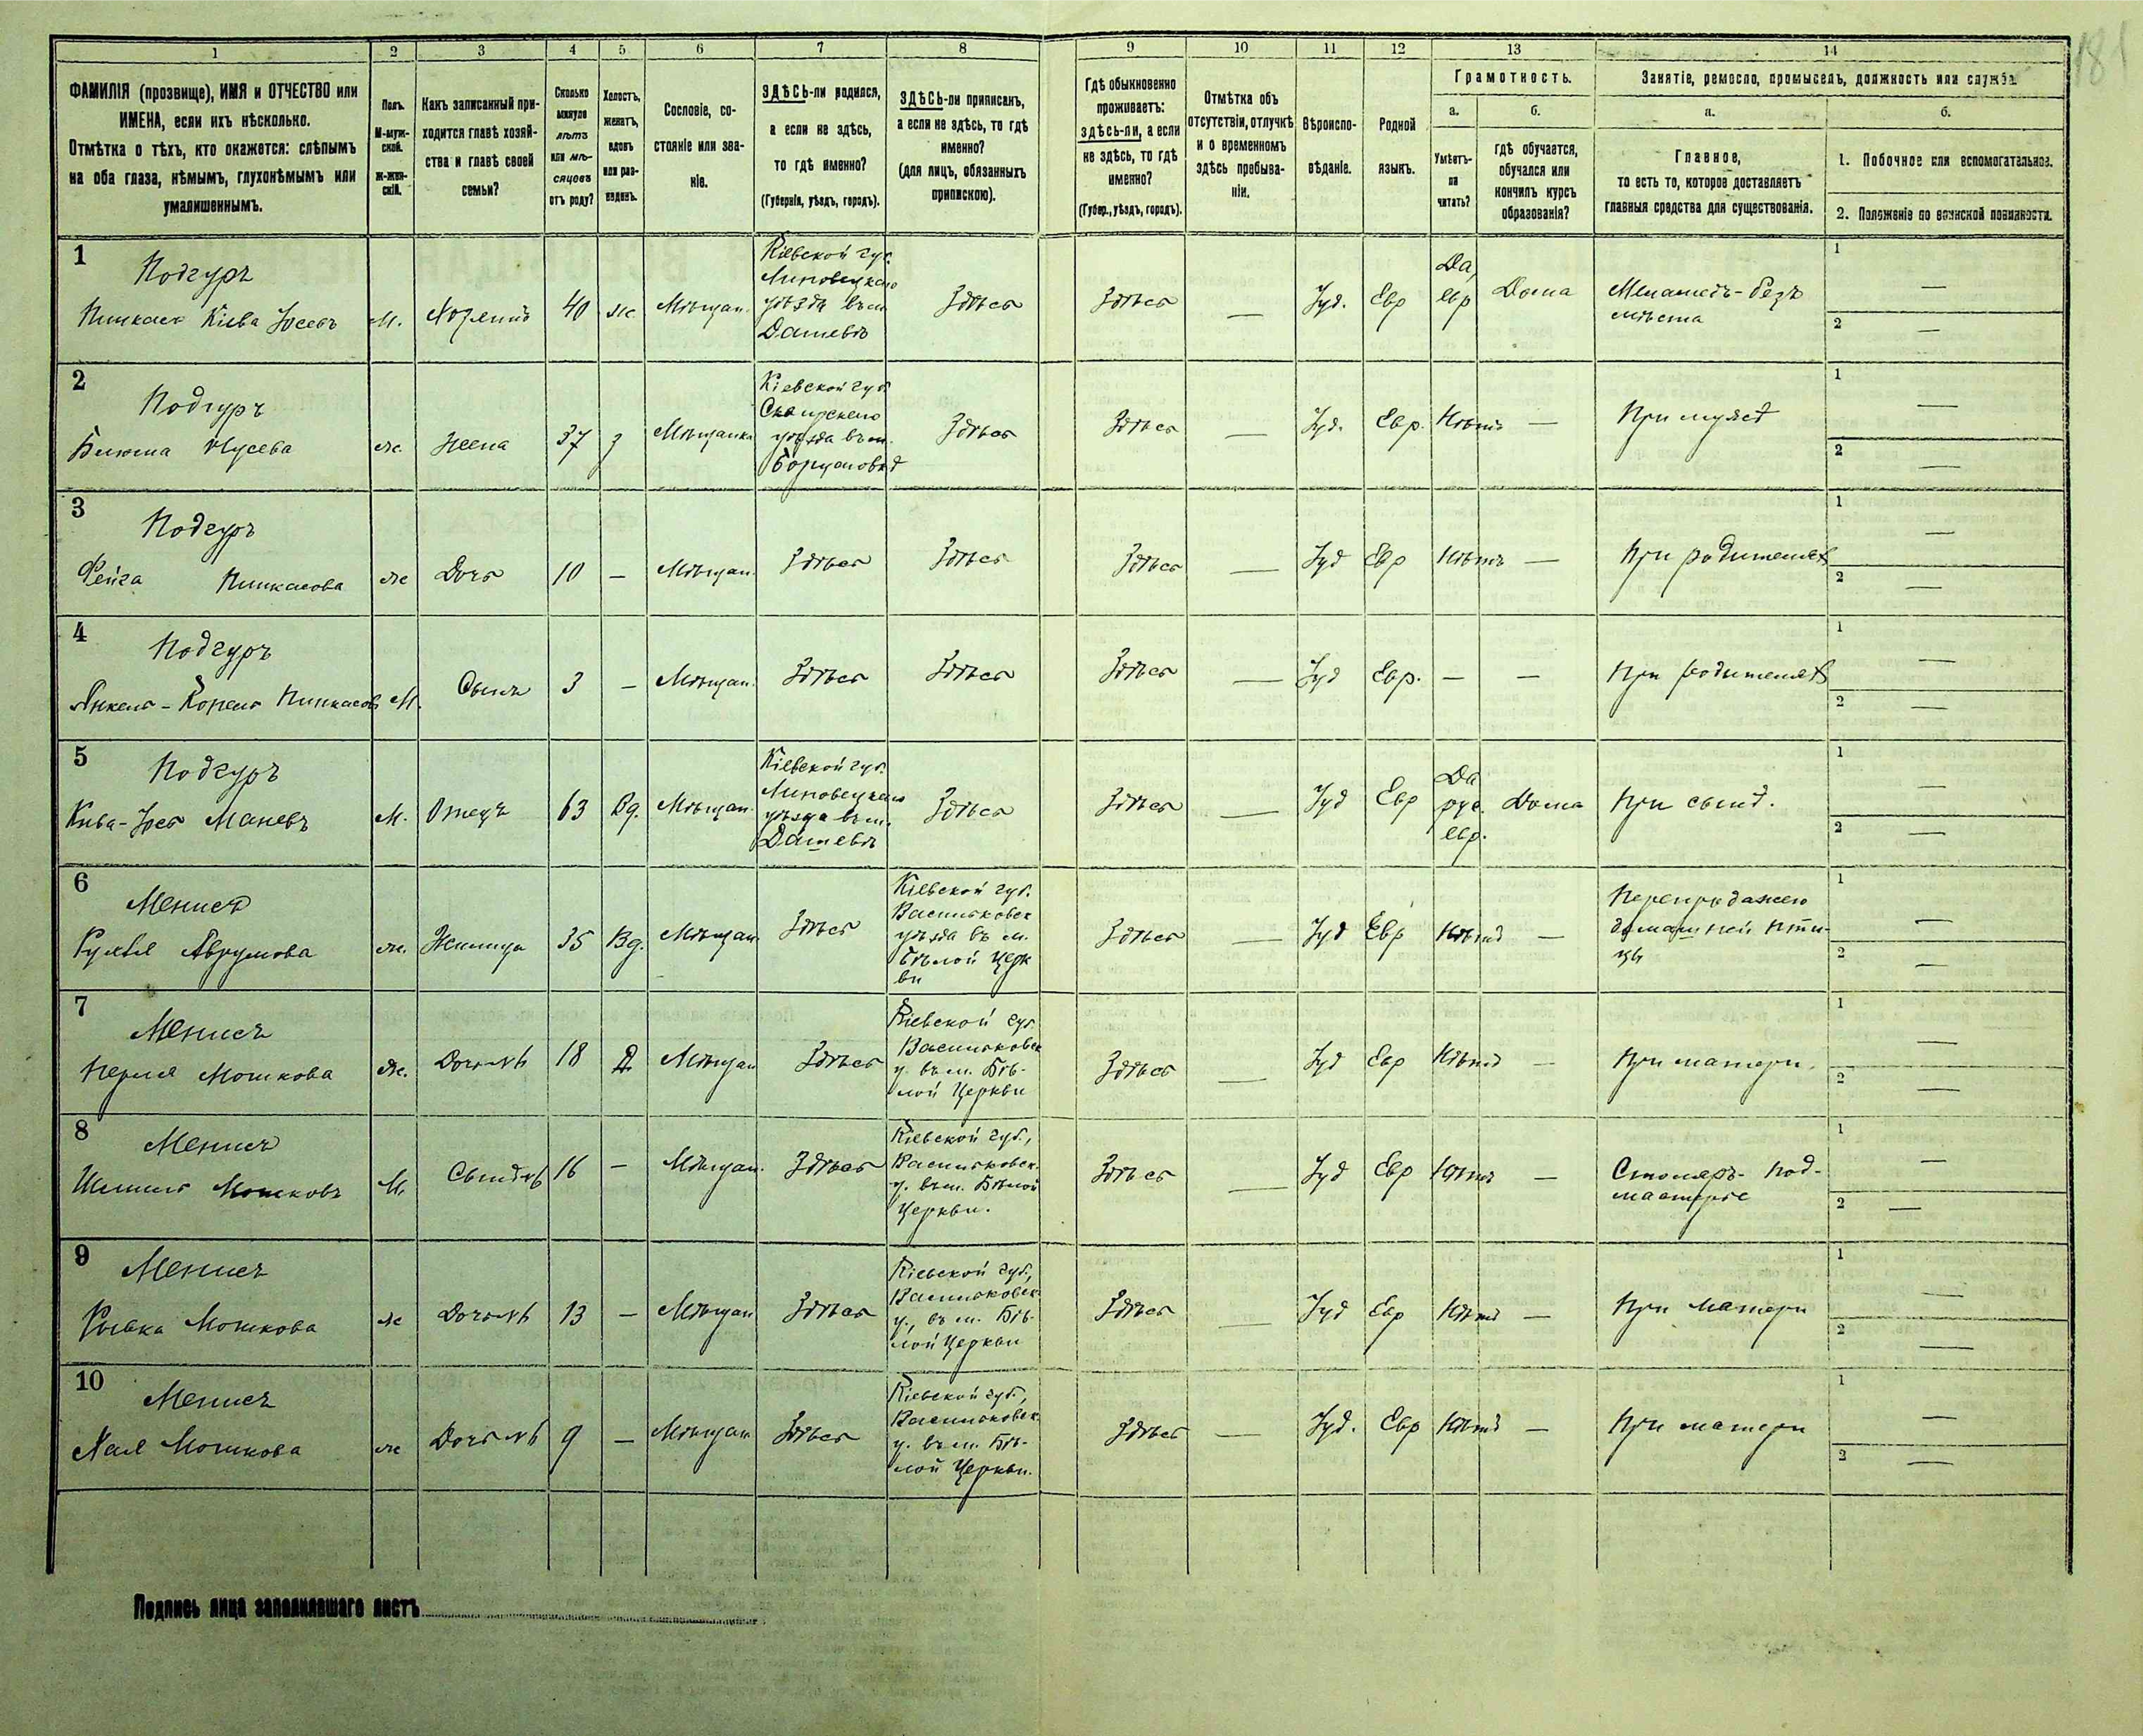 181
1 2 3 4 5 6 7 8 9 10 11 12 13 14
ФАМИЛІЯ (прозвище), ИМЯ и ОТЧЕСТВО или
ИМЕНА, если ихъ нѣсколько.
Отмѣтка о тѣхъ, кто окажется: слѣпымъ
на оба глаза, нѣмымъ, глухонѣмымъ или
умалишеннымъ.
Полъ.
М-муж-
ской.
Ж-жен-
скій.
Какъ записанный при-
ходится главѣ хозяй-
ства и главѣ своей
семьи?
Сколько
минуло
лѣтъ
или мѣ-
сяцовъ
отъ роду?
Холостъ,
женатъ,
вдовъ
или раз-
веденъ.
Сословіе, со-
стояніе или зва-
ніе.
ЗДѢСЬ-ли родился,
а если не здѣсь,
то гдѣ именно?
(Губернія, уѣздъ, городъ).
ЗДѢСЬ-ли приписанъ,
а если не здѣсь, то гдѣ
именно?
(для лицъ, обязанныхъ
припискою).
Гдѣ обыкновенно
проживаетъ:
здѣсь-ли, а если
не здѣсь, то гдѣ
именно?
(Губер., уѣздъ, городъ).
Отмѣтка объ
отсутствіи, отлучкѣ
и о временномъ
здѣсь пребыва-
ніи.
Вѣроиспо-
вѣданіе.
Родной
языкъ.
Грамотность.
а.
Умѣетъ-
ли
читать?
б.
гдѣ обучается,
обучался или
кончилъ курсъ
образованія?
Занятіе, ремесло, промыселъ, должность или служба
а.
Главное,
то есть то, которое доставляетъ
главныя средства для существованія.
б.
1. Побочное или вспомогательное.
2. Положеніе по воинской повинности.
1
Подгуръ
Пинкасъ Кива Іосевъ
М.
Хозяинъ
40
ж
Мѣщан.
Кіевской губ.
Липовецкаго
уѣзда въ м.
Дашевѣ
Здѣсь
Здѣсь
—
Іуд.
Евр
Да,
евр
Дома
Меламедъ-безъ
мѣста
1 —
2 —
2
Подгуръ
Нусева
ж.
Жена
37
з
Мѣщанка
Кіевской губ.
Сквирскаго
уѣзда въ м.
Здѣсь
Здѣсь
—
Іуд.
Евр.
Нѣтъ
—
При мужѣ
1 —
2 —
3
Подгуръ
Фейга Пинкасова
ж
Дочь
10
—
Мѣщан.
Здѣсь
Здѣсь
Здѣсь
—
Іуд
Евр
Нѣтъ
—
При родителяхъ
1 —
2 —
4
Подгуръ
Янкель-Копель Пинкасовъ
М.
Сынъ
3
—
Мѣщан.
Здѣсь
Здѣсь
Здѣсь
—
Іуд
Евр.
—
—
При родителяхъ
1 —
2 —
5
Подгуръ
Кива-Іось Маневъ
М.
Отецъ
63
Вд.
Мѣщан.
Кіевской губ.
Липовецкаго
уѣзда въ м.
Дашевѣ
Здѣсь
Здѣсь
—
Іуд
Евр
Да
рус.
евр.
Дома
При сынѣ.
1 —
2 —
6
Аврумова
ж.
Жилица
35
Вд.
Мѣщан.
Здѣсь
Кіевской губ.
Васильковск
уѣзда въ м.
Бѣлой Церк
ви
Здѣсь
—
Іуд
Евр
Нѣтъ
—
Перепродажею
домашней пти-
цы
1 —
2 —
7
Перля Мошкова
ж.
Дочь
18
Д
Мѣщан
Здѣсь
Кіевской губ.
Васильковск
у. въ м. Бѣ-
лой Церкви
Здѣсь
—
Іуд
Евр
Нѣтъ
—
При матери.
1 —
2 —
8
Мошковъ
М.
Сынъ
16
—
Мѣщан.
Здѣсь
Кіевской губ.,
Васильковск.
у. въ м. Бѣлой
Церкви.
Здѣсь
—
Іуд
Евр
Нѣтъ
—
Столяръ-под-
мастерье
1 —
2 —
9
Рывка Мошкова
ж
Дочь
13
—
Мѣщан
Здѣсь
Кіевской губ.,
Васильковск.
у., въ м. Бѣ-
лой Церкви
Здѣсь
—
Іуд
Евр
Нѣтъ
—
При матери
1 —
2 —
10
Хая Мошкова
ж
Дочь
9
—
Мѣщан
Здѣсь
Кіевской губ.,
Васильковск.
у. въ м. Бѣ-
лой Церкви.
Здѣсь
—
Іуд.
Евр
Нѣтъ
—
При матери
1 —
2 —
Подпись лица заполнявшаго листъ